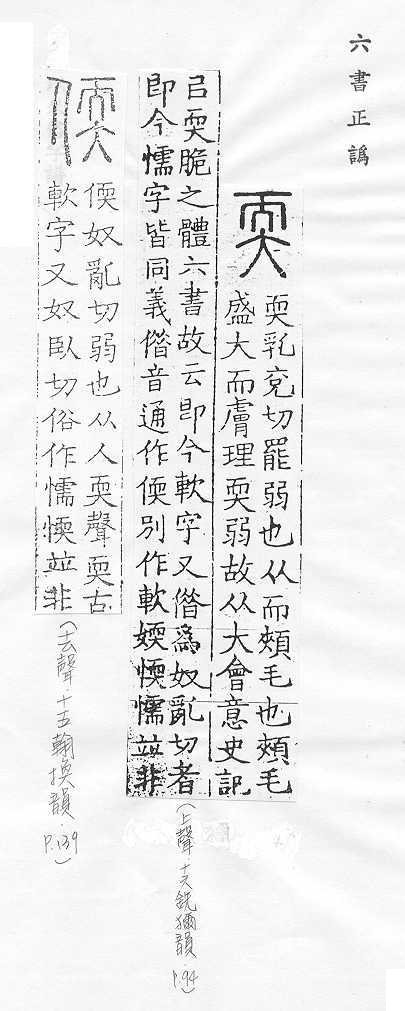 六書正譌
耎
耎乳兗切罷弱也从而頰毛也頰毛
盛大而膚理耎弱故从大會意史記
㠯耎脆之體六書故云即今軟字又借爲奴亂切者
即今懦字皆同義借音通作偄別作軟媆愞懦竝非
(上聲·十六銑獮韻 P.94)
偄
偄奴亂切弱也从人耎聲耎古
軟字又奴臥切俗作懦愞竝非
(去聲·十五翰換韻 P.139)